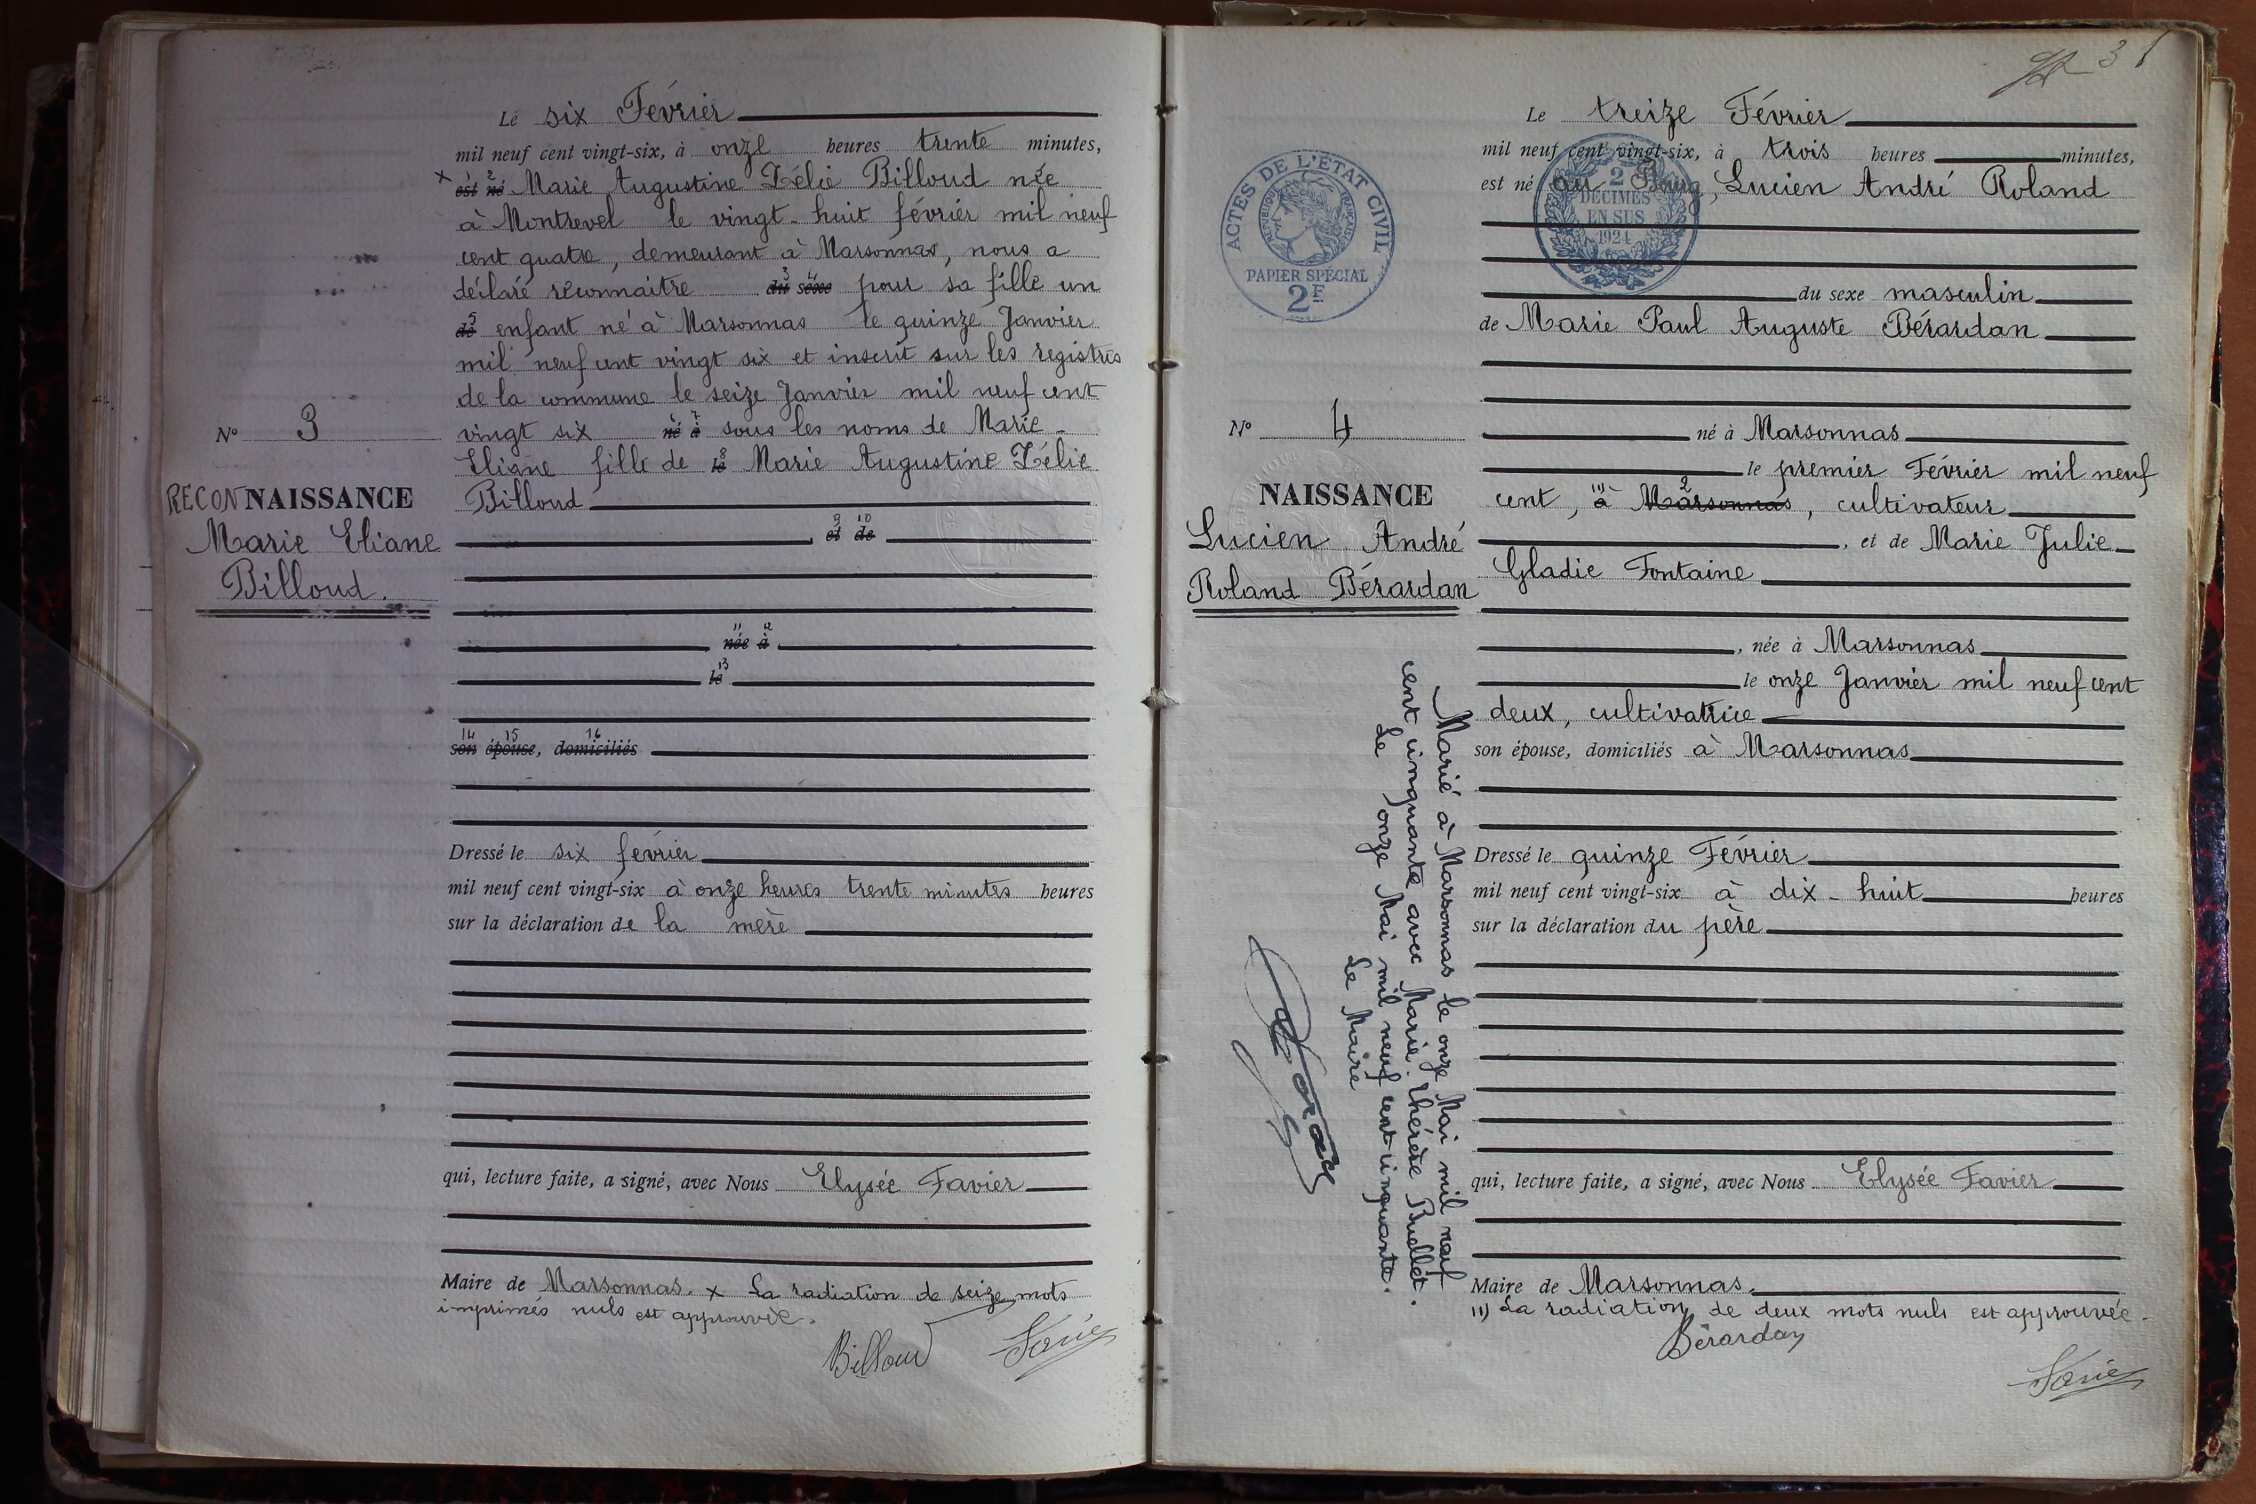 Le six Février
mil neuf cent vingt-six, à onze heures trente minutes,
x est né Marie Augustine Zélie Billoud née
à Montrevel le vingt-huit février mil neuf
cent quatre, demeurant à Marsonnas, nous a
déclaré reconnaitre du sexe pour sa fille un
de enfant né à Marsonnas le quinze Janvier
mil neuf cent vingt six et inscrit sur les registres
de la commune le seize Janvier mil neuf cent
vingt six né à sous les noms de Marie-
Eliane fille de le Marie Augustine Zélie
Billoud
et de
née à
le
son épouse, domiciliés
Dressé le six février
mil neuf cent vingt-six à onze heures trente minutes heures
sur la déclaration de la mère
qui, lecture faite, a signé, avec Nous Elysée Favier
Maire de Marsonnas. x La radiation de seize mots
imprimés nuls est approuvée.
Billoud Favier
N° 3
RECONNAISSANCE
Marie Eliane
Billoud.
31
Le treize Février
mil neuf cent vingt-six, à trois heures minutes,
est né au Bourg, Lucien André Roland
du sexe masculin
de Marie Paul Auguste Bérardan
né à Marsonnas
le premier Février mil neuf
cent, à Marsonnas, cultivateur
, et de Marie Julie
Gladie Fontaine
, née à Marsonnas
le onze Janvier mil neuf cent
deux, cultivatrice
son épouse, domiciliés à Marsonnas
Dressé le quinze Février
mil neuf cent vingt-six à dix-huit heures
sur la déclaration du père
qui, lecture faite, a signé, avec Nous Elysée Favier
Maire de Marsonnas.
La radiation de deux mots nuls est approuvée.
Bérardan
Favier
ACTES DE L'ÉTAT CIVIL
RÉPUBLIQUE FRANÇAISE
PAPIER SPÉCIAL
2F
2
DÉCIMES
EN SUS
1924
N° 4
NAISSANCE
Lucien André
Roland Bérardan
Marié à Marsonnas le onze Mai mil neuf
cent cinquante avec Marie Thérèse Buellet.
Le onze Mai mil neuf cent cinquante.
Le Maire